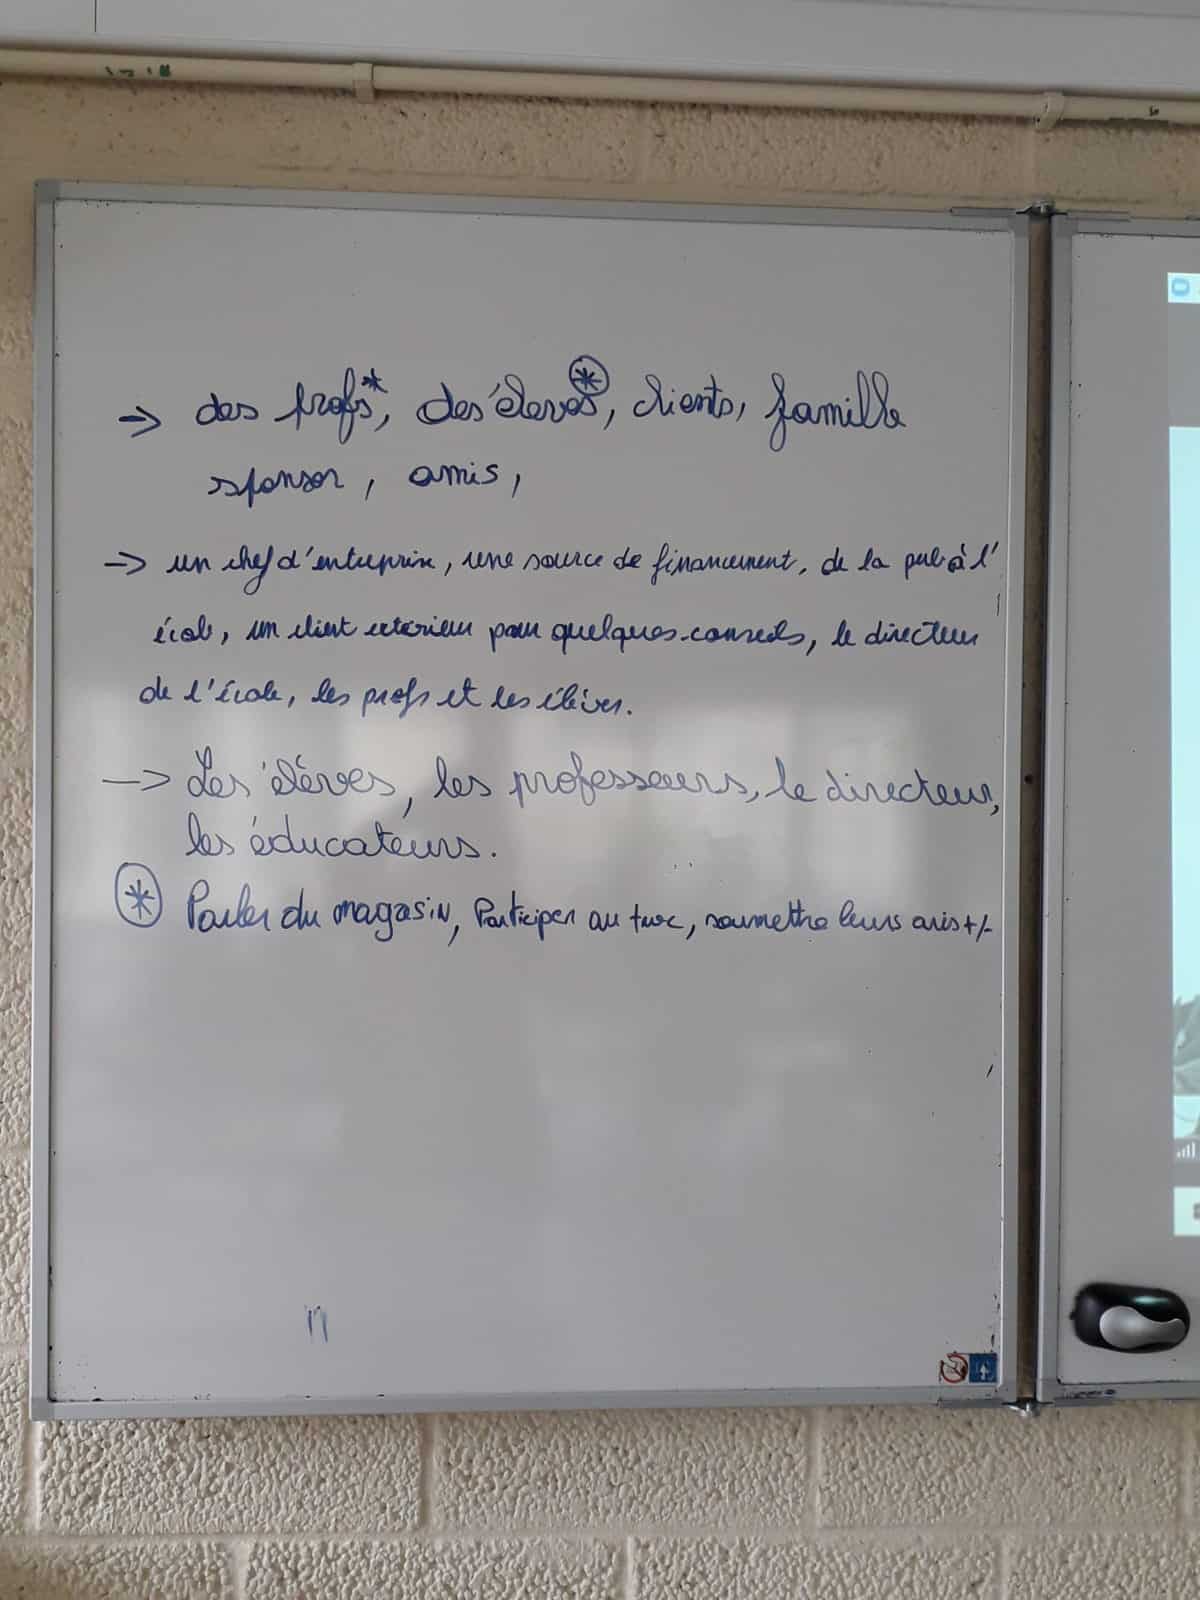 → des profs*, des élèves⊛, clients, famille
sponsor, amis,
→ un chef d'entreprise, une source de financement, de la pub à l'
école, un client extérieur pour quelques conseils, le directeur
de l'école, les profs et les élèves.
→ Les élèves, les professeurs, le directeur,
les éducateurs.
⊛ Parler du magasin, Participer au truc, soumettre leurs avis +/-